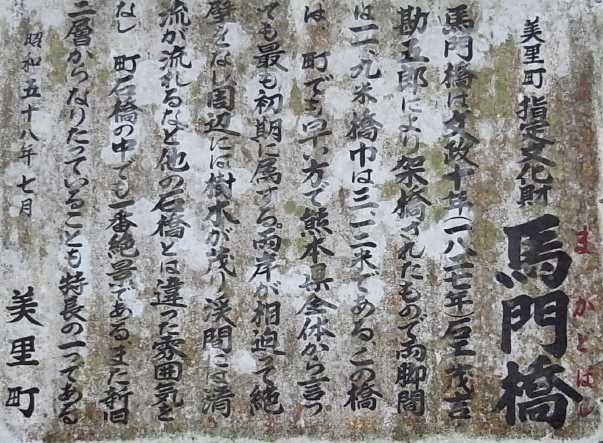 美里町指定文化財
馬門橋
まかどばし
馬門橋は文政十年(一八二七年)石工茂吉
勘五郎により架橋されたもので両脚間
は一一、九米橋巾は三、一二米である、この橋
は、町でも早い方で熊本県全体から言っ
ても最も初期に属する。両岸が相迫って絶
壁をなし周辺には樹木が茂り渓間には清
流が流れるなど他の石橋とは違った雰囲気を
なし町石橋の中でも一番絶景である、また新旧
二層からなりたっていることも特長の一つである
昭和五十八年七月
美里町